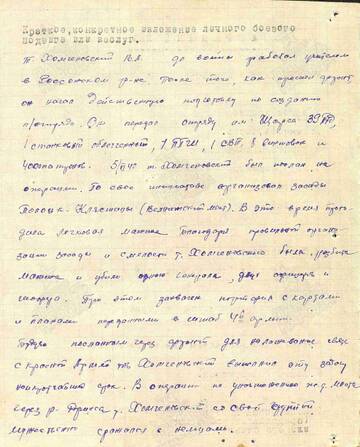 Краткое, конкретное изложение личного боевого
подвига или заслуг.
т. Хомченовский В.А. до войны работал учителем
в Россонском р-не. После того, как пришел фронт
он начал действенную подготовку по созданию
п/отряда. Он передал отряду им Щорса 39
1 станковый 1 ППШ, 1 СВТ, винтовок и
4000 патрон. т. Хомченовский был послан на
операцию. По свое инициативе организовал засады
Полоцк - Клястицы В это время прохо-
дила легковая машина благодаря органи-
зации засады и смелости т. Хомченовского была разбита
машина и убили одного генерала, двух офицеров и
шофера. При этом захвачен портфель с картами
и планами переданными в штаб 4й армии.
Будучи посланным через фронт для налаживания связи
с красной Армией тов. Хомченовский выполнил эту задачу
в срок. В операции по уничтожению ж.д. моста
через р. Дрисса т. Хомченовский со своей группой
мужественно сражался с немцами.